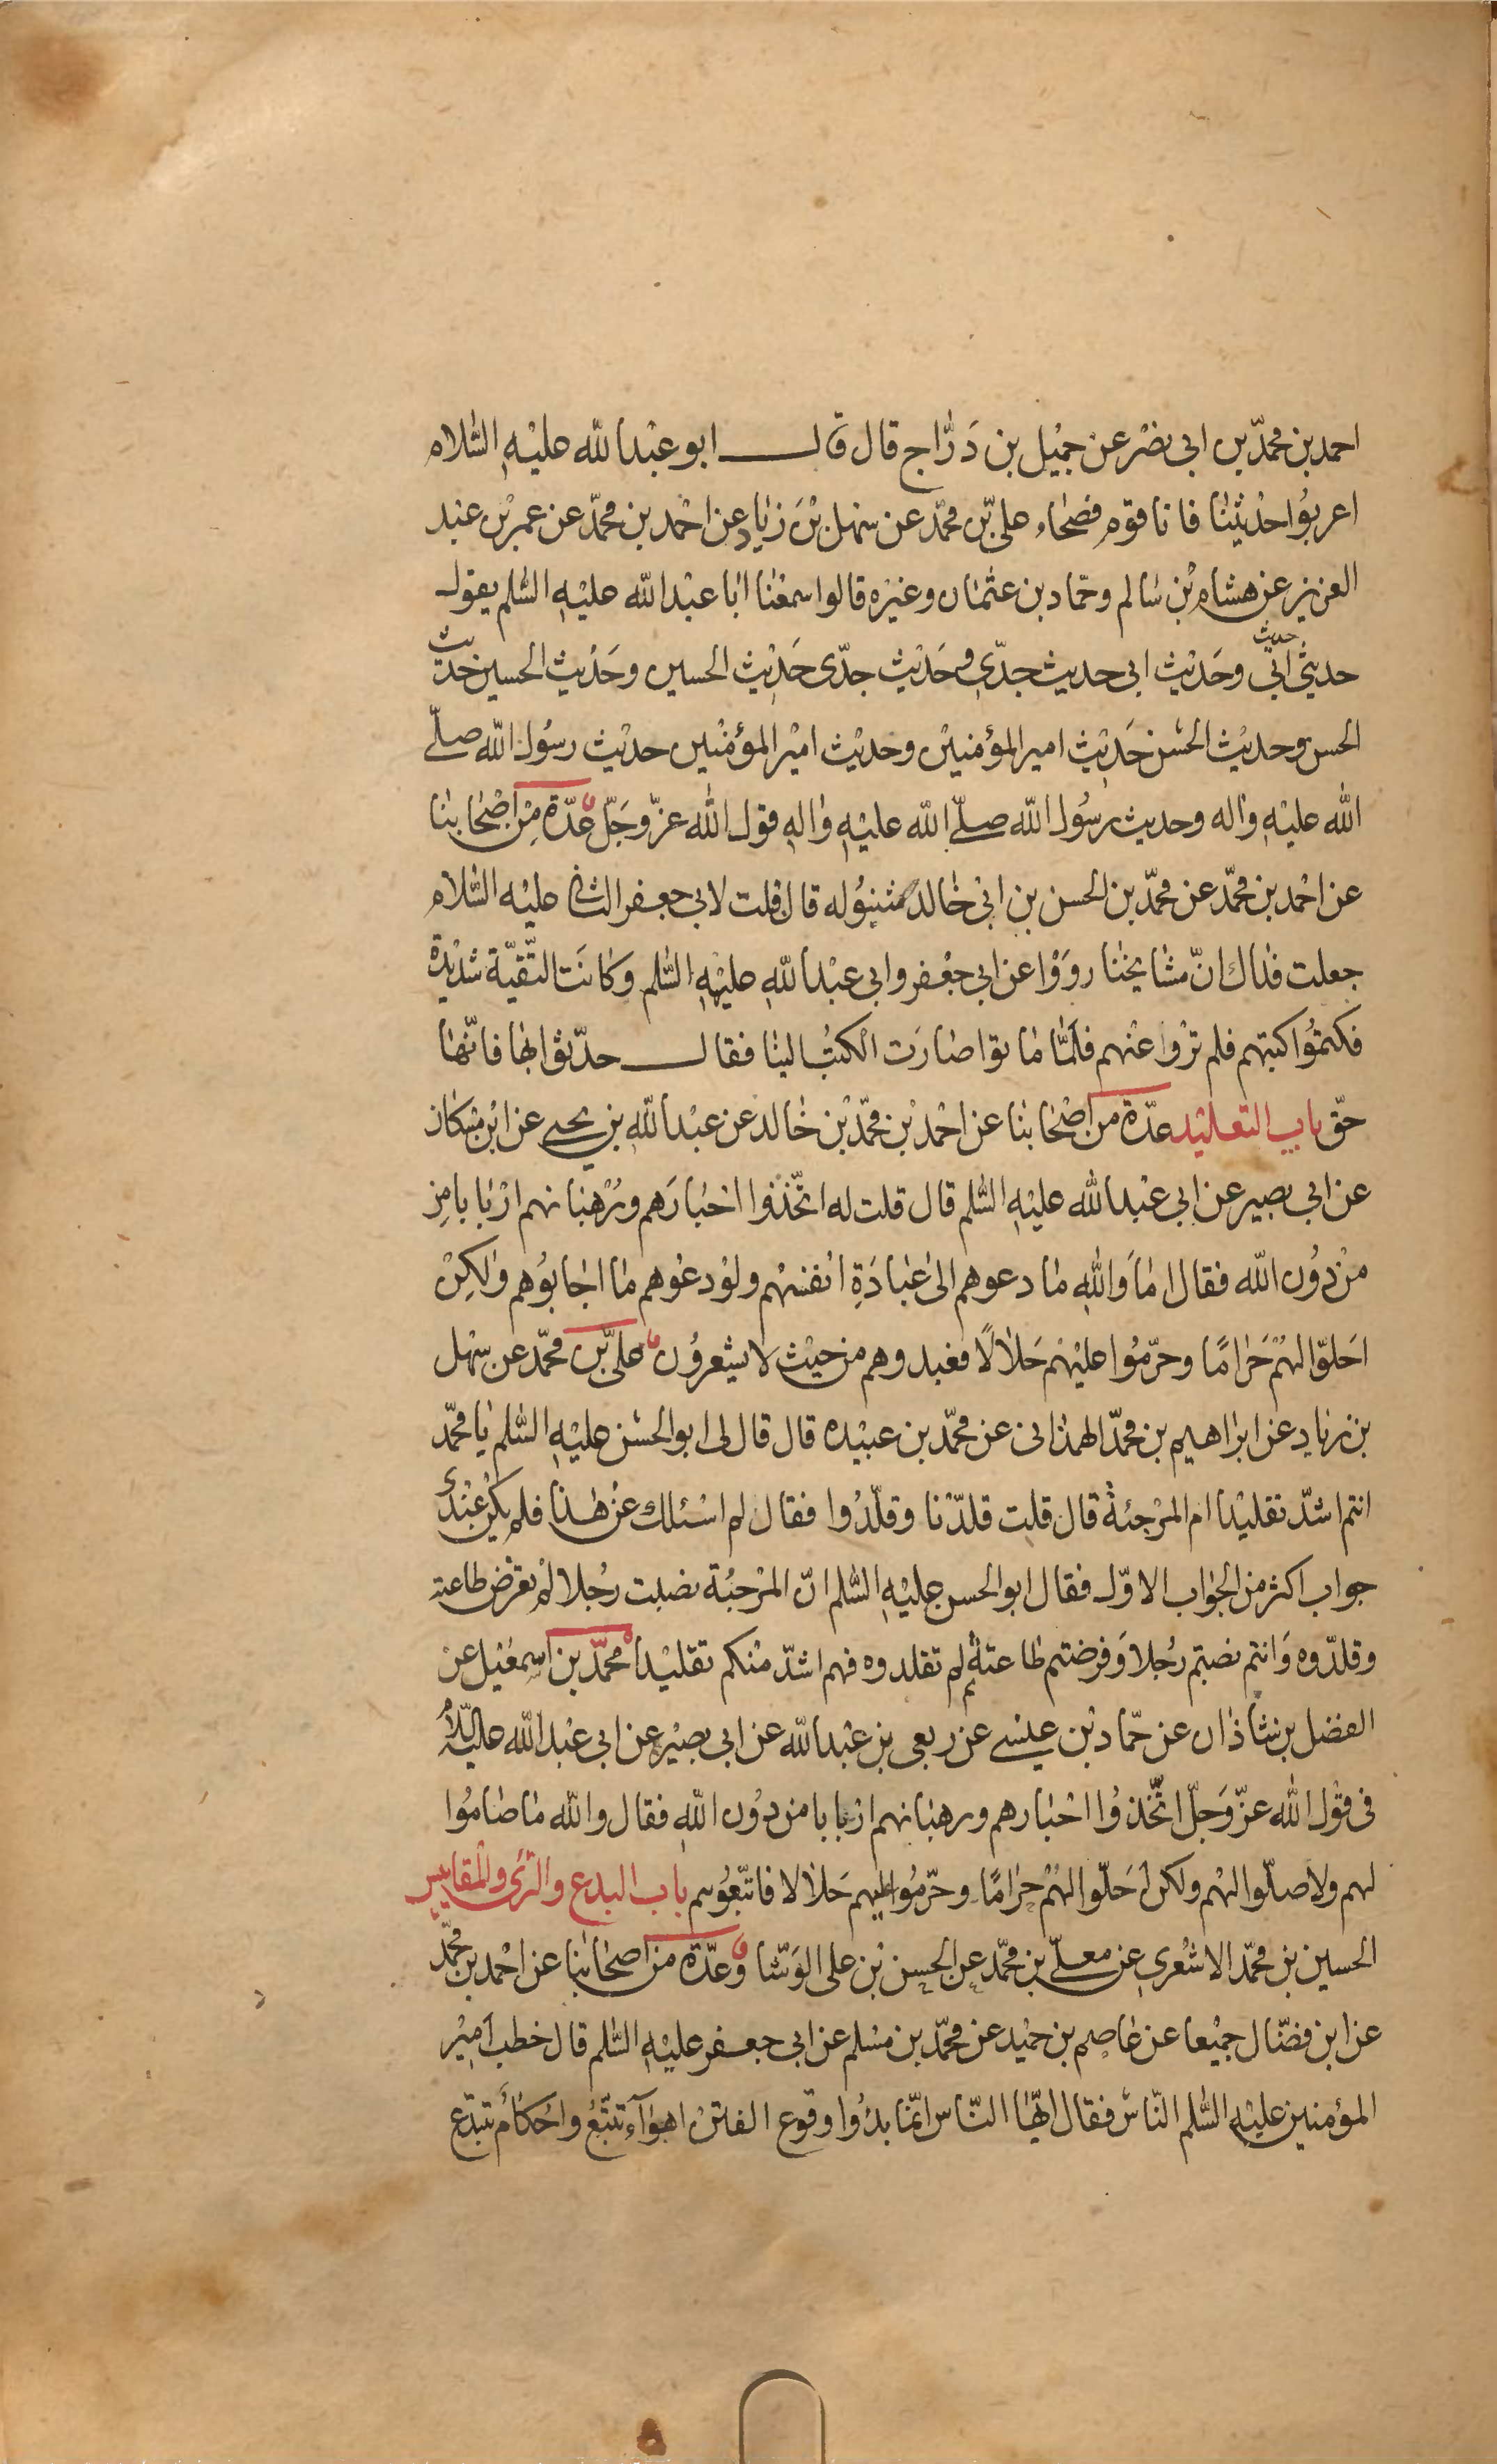 احمد بن محمّد بن ابى نصْر عن جمْيل بن دَرّاج قال قال ابو عبْدالله عليْهِ السّلام
اعربوُا حدْيثنٰا فانا قومٍ فصحٰاء علىّ بن محمّد عن سهْل بْن زيٰاد عن احْمد بن محمّد عن عمر بْن عبْد
العزيز عن هشام بْن سٰالم وحمّاد بن عثمٰان وغيْره قالوا سمعْنٰا ابٰا عبْدالله عليْهِ السّلم يقول
حديثى حديث ابىٖ وحَديْث ابى حديث جدّى وحَديْث جدّى حَديْث الحسين وحَديْث الحسين حديث
الحسن وحديْث الحسَن حَديْث امير المؤمنيْن وحديْث اميْر المؤمنْين حديْث رسُول الله صلّى
الله عليْهِ واٰله وحديث رسُول الله صلّى الله عليْهِ واٰلهِ قول الله عزّ وجَلّ عدّة مِنْ اصْحٰابنٰا
عن احْمد بن محمّد عن محمّد بن الحسن بن ابىْ خٰالد شنبُوله قال قلت لابى جعفر الثانى عليْه السّلام
جعلت فداك انّ مشٰايخنٰا روَوْا عن ابى جعْفر وابى عبْداللهِ عليْهِا السّلم وكٰانَت التّقيّة شديْدة
فكتموُا كتبهم فلم ترْوا عنْهم فلَمّٰا مٰاتوا صٰارَت الكتبُ الينٰا فقال حدّثوا بهٰا فانّهٰا
حقّ باب التقليْد عدّة من اصْحٰابنٰا عن احْمد بْن محمّد بْن خٰالد عن عبْداللهِ بن يحيى عن ابْن مسْكان
عن ابى بصير عن ابى عبْدالله عليْهِ السّلم قال قلت له اتّخذوا احْبٰارَهم ورُهْبٰانهم ارْبٰابا من
منْ دوُن الله فقال امٰا وَاللهِ مٰا دعوهم الى عبٰادَةِ انْفسهْم ولوْ دعوْهم مٰا اجٰابوُهم ولٰكِنْ
احَلّوا لهُمْ حَرٰامًا وحرّموُا عليْهم حَلٰالًا فعبدوهم من حيْث لا يشْعروُن علىّ بن محمّد عن سهْل
بن زيٰاد عن ابرٰاهيم بن محمّد الهمدٰانى عن محمّد بن عبيْده قال قال لى ابو الحسَن عليْهِ السّلم يٰا محمّد
انتم اشدّ تقليْدا ام المرْجئة قال قلت قلدّنٰا وقلّدوُا فقال لم اسْئلك عنْ هٰذا فلم يكنْ عنْدى
جواب اكثر من الجوٰاب الاوّل فقال ابو الحسن عليْهِ السّلم انّ المرْجئة نصبت رجُلا لمْ تفرْض طاعته
وقلدّوه وَانتم نصبتم رجُلا وَفرضتم طٰاعتهُ ثم لم تقلدوه فهم اشدّ منْكم تقليْداً محمّد بن اسمعيْل عن
الفضل بن شٰاذٰان عن حمّاد بْن عيسْى عن ربعى بن عبْدالله عن ابى بصيْر عن ابى عبْدالله عليْهِ السّلام
فى قوْل الله عزّ وَجَلّ اتّخذوُا احْبٰارهم ورهبٰانهم ارْبٰابا من دوُن اللهِ فقال والله مٰا صٰاموُا
لهم ولا صلّوا لهْم ولكن احَلّوا لهُمْ حرٰامًا وحرّموُا عليهم حَلٰالا فاتّبعوُهم باب البدع والرّأى والمقاييس
الحسين بن محمّد الاشْعرى عن معلّى بن محمّد عن الحسن بْن على الوَشّا وعدّة من اصحٰابنٰا عن احْمد بن محمّد
عن ابن فضّال جميْعا عن عٰاصم بن حميْد عن محمّد بن مسْلم عن ابى جعفر عليْهِ السّلم قال خطب اميْر
المؤمنين عليْهِ السّلم النّاس فقال ايّهٰا النّاس انّمٰا بدؤُا وقوع الفتن اهوٰآء تتّبعُ واحْكٰامُ تبتدع